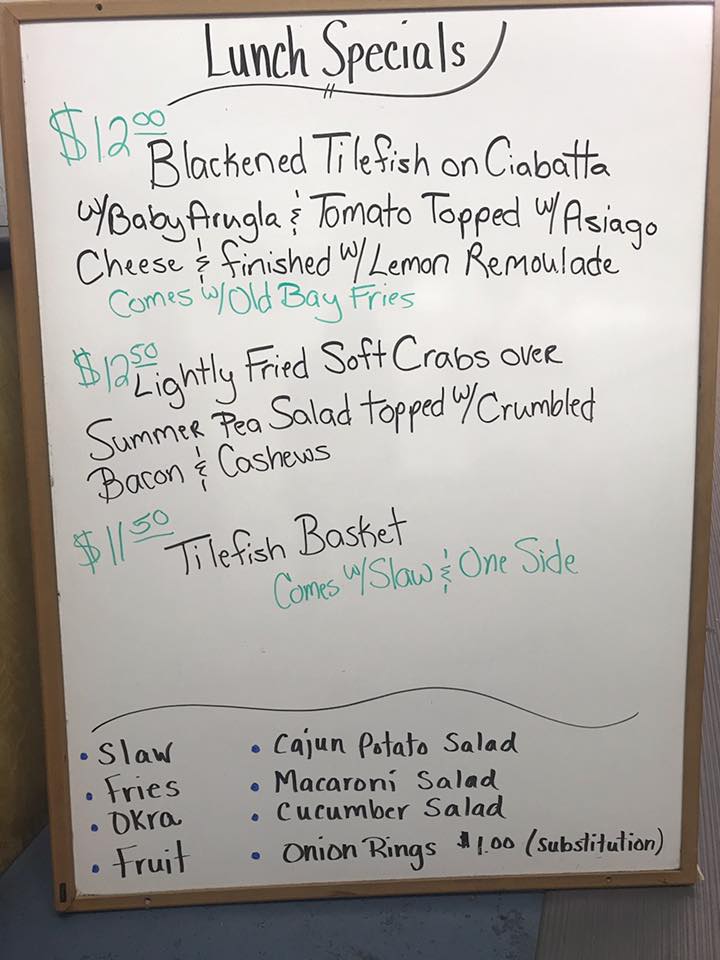 Lunch Specials
$12.00
Blackened Tilefish on Ciabatta
w/Baby Arugla & Tomato Topped w/Asiago
Cheese & finished w/Lemon Remoulade
Comes w/Old Bay Fries
$12.50 Lightly Fried Soft Crabs over
Summer Pea Salad topped w/Crumbled
Bacon & Cashews
$11.50 Tilefish Basket
Comes w/Slaw & One Side
• Slaw
• Fries
• Okra
• Fruit
• Cajun Potato Salad
• Macaroni Salad
• Cucumber Salad
• Onion Rings $1.00 (substitution)